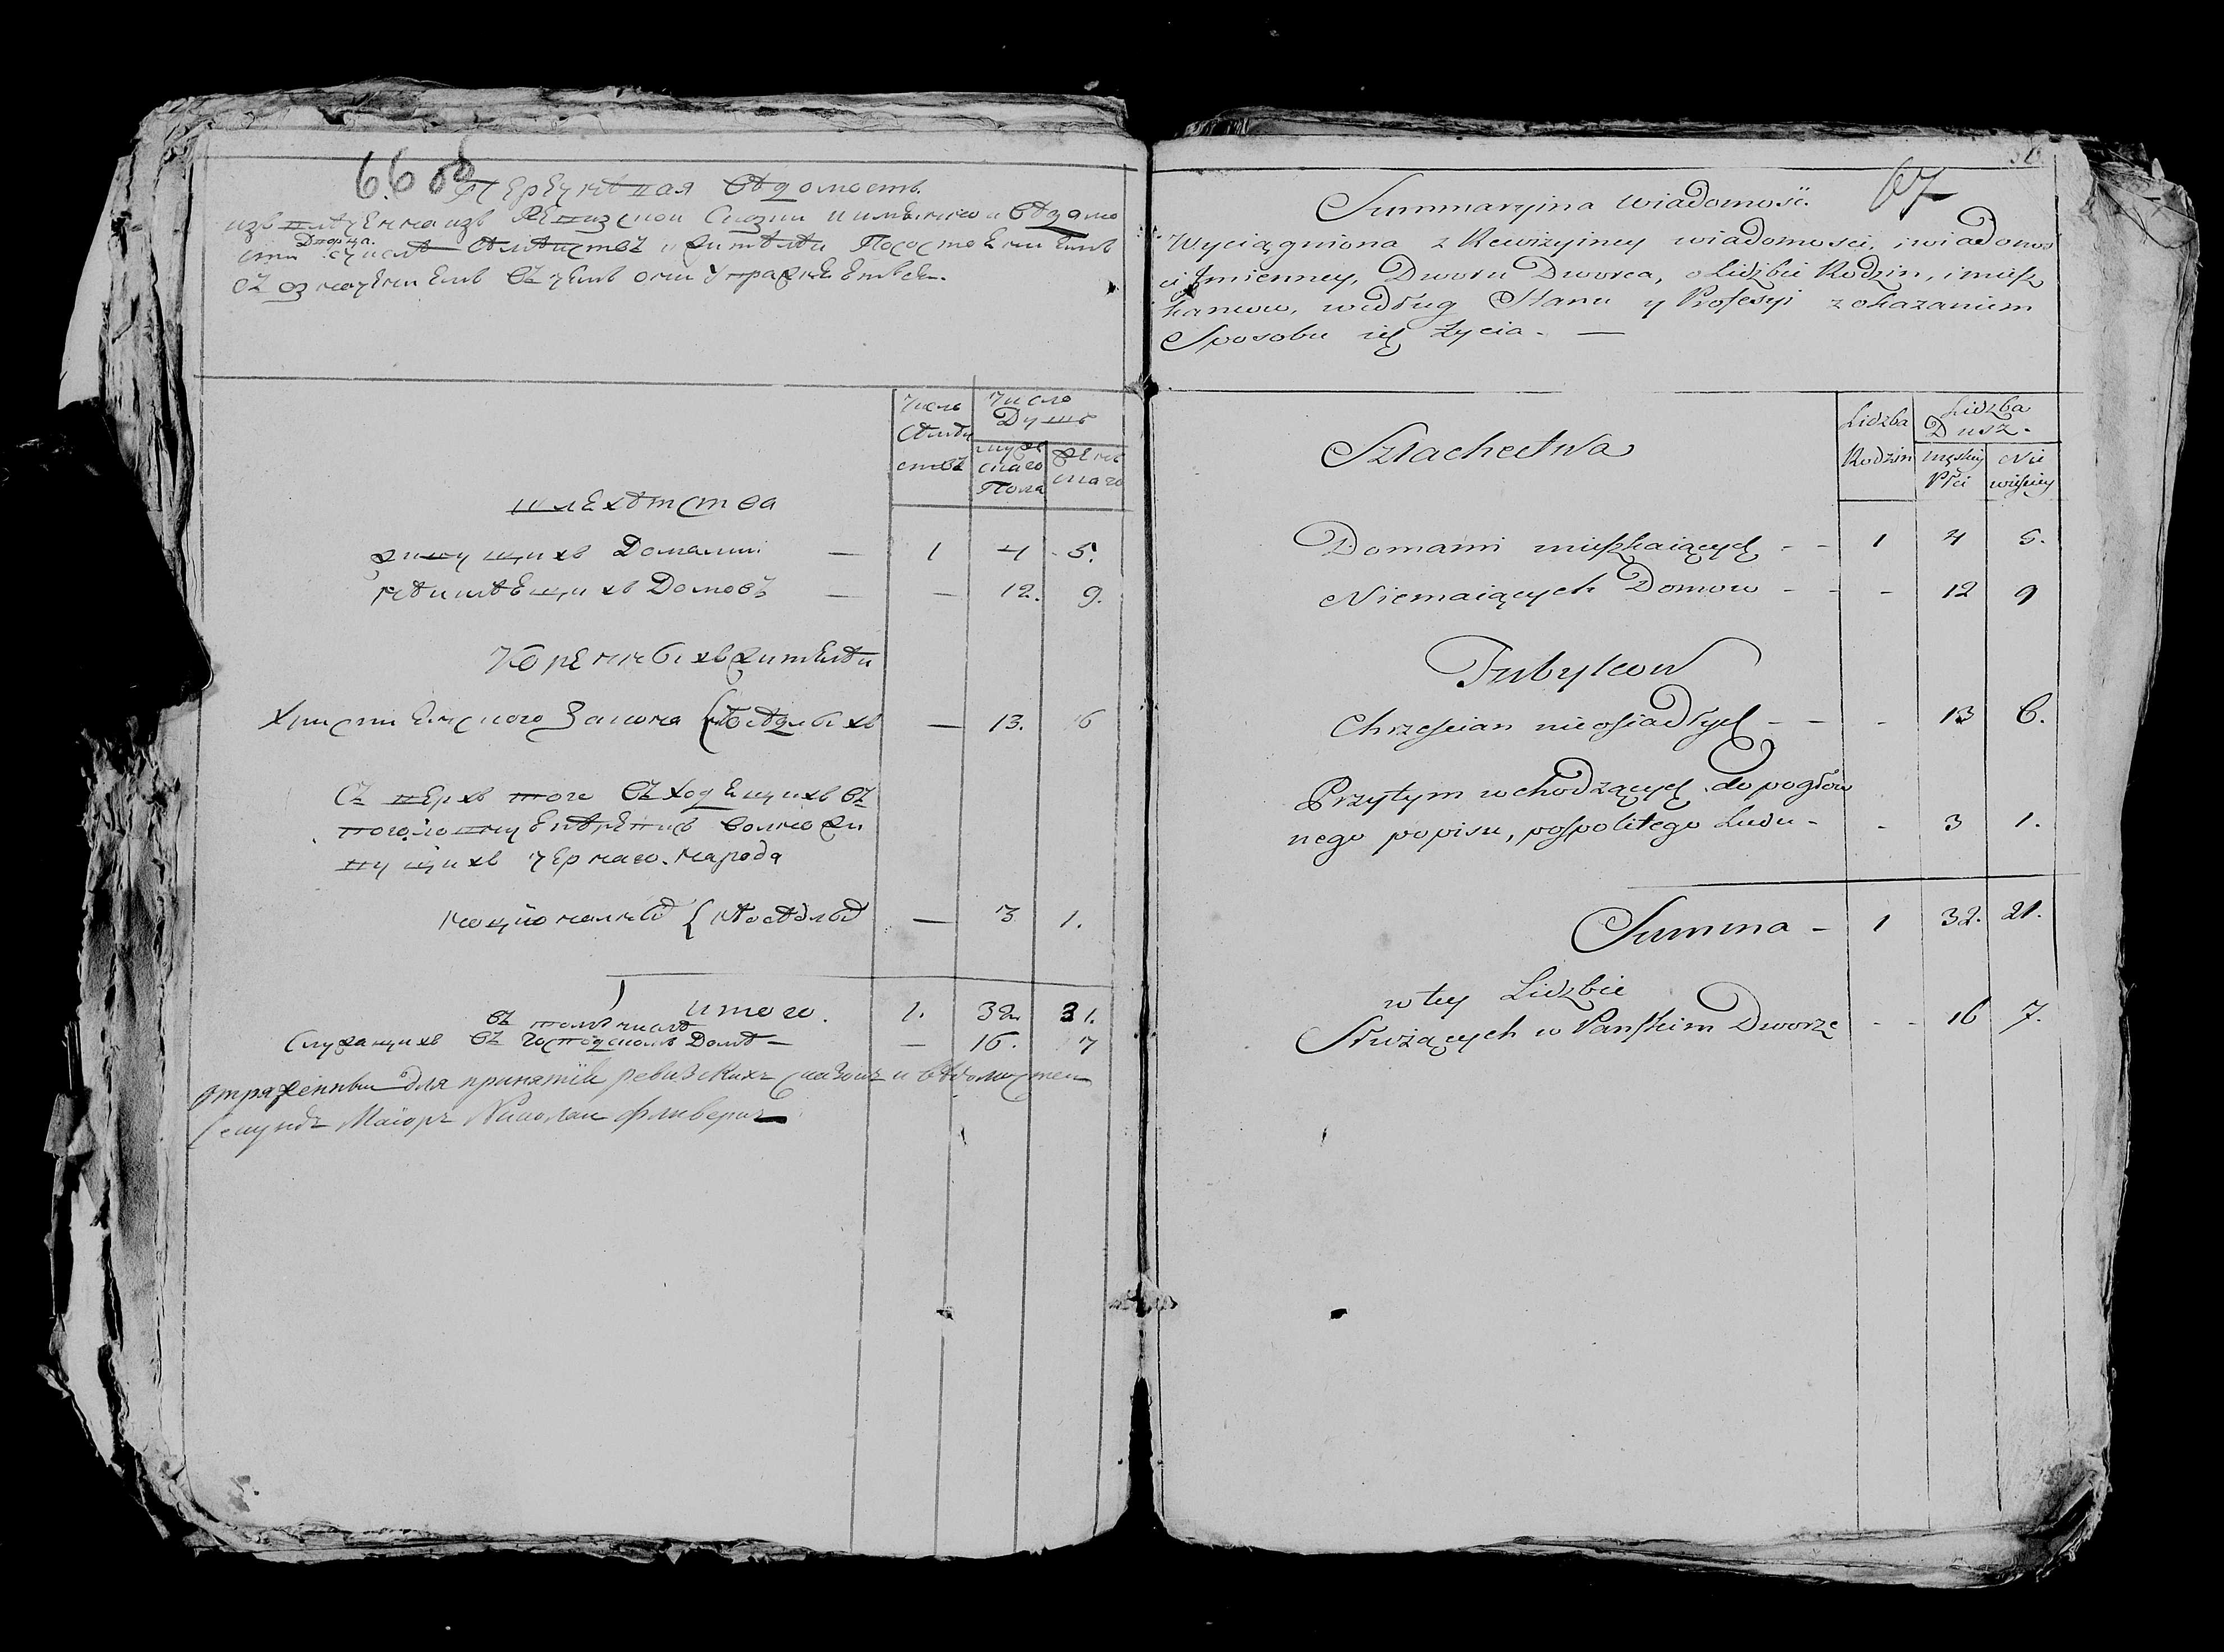 66 об
Перечневая ведомость
извлеченная изъ Ревизской Сказки и имянной ведомо
Дворца
сти числе семействъ и жителей По состоянию ихъ
съ означениемъ въ чемъ они упражняются.
Число
Семей
ствъ
Число
Душъ
мужс
каго
Пола
женс
каго
шлехетства
живущихъ Домами — 1 4 5.
неимеющихъ Домовъ — — 12. 9.
Коренныхъ жителей
Християнского Закона — 13. 6
Сверхъ того входящихъ въ
черного народа
— 3 1.
итого. 1. 32. 21.
въ томъ числе
Служащихъ въ господскомъ Доме — — 16. 7
отряженный для принятия ревизскихъ сказокъ и ведомостей
Секундъ Маiоръ Николай
67
Summaryina wiadomość
Wyciągniona z Rewizyiney wiadomosci, i wiadomos
ci Jmienney, Dworu Dworca, o Lidzbie Rodzin, i miesz
kancow, według Stanu y Profesyi z okazaniem
Sposobu ich życia. —
Szlachectwa
Lidzba
Rodzin
Lidzba
Dusz.
męskiey
Płci
Nie
wieściey
Domami mieszkaiących - - 1 4 5.
Niemaiących Domow - - - 12 9
Tubylcow
Chrzescian nieosiadłych - - - 13 6.
Przytym wchodzących do pogłow
nego popisu, pospolitego Ludu - - 3 1.
Summa - 1 32. 21.
w tey Lidzbie
Służących w Panskim Dworze - - 16 7.